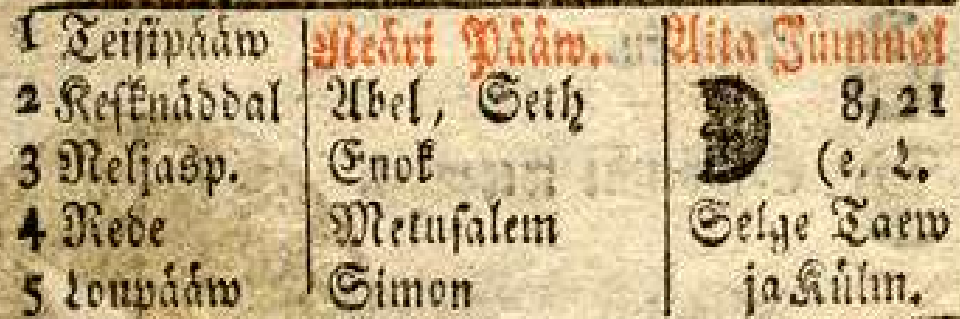 1 Teisipääw Neäri Pääw. Aita Jummal
2 Kesknäddal Abel, Seth 8, 21
3 Neljasp. Enok (e. L.
4 Rede Metusalem Selge Taew
5 Loupääw Simon ja Külm.